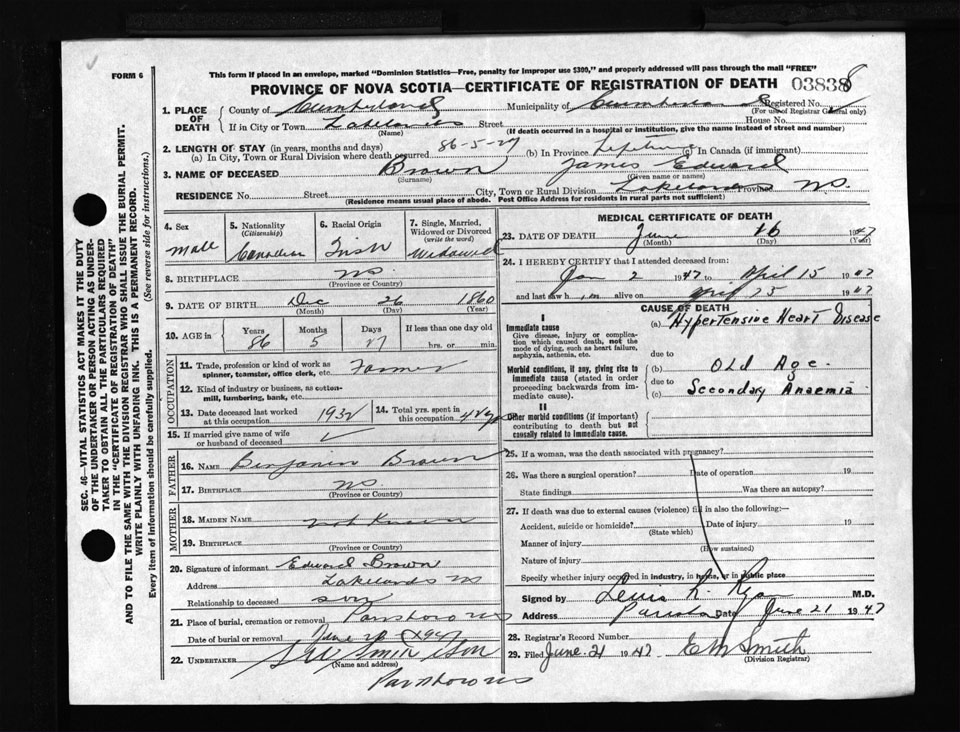 FORM 6
This form if placed in an envelope, marked "Dominion Statistics—Free, penalty for improper use $300," and properly addressed will pass through the mail "FREE"
PROVINCE OF NOVA SCOTIA—CERTIFICATE OF REGISTRATION OF DEATH 03838
1. PLACE OF DEATH
County of Cumberland Municipality of Cumberland Registered No.
(For use of Registrar General only)
If in City or Town Lakelands Street House No.
(Name) (If death occurred in a hospital or institution, give the name instead of street and number)
2. LENGTH OF STAY (in years, months and days)
(a) In City, Town or Rural Division where death occurred 86-5-27 (b) In Province Lifetime (c) In Canada (if immigrant)
3. NAME OF DECEASED Brown James Edward
(Surname) (Given name or names)
RESIDENCE No. Street City, Town or Rural Division Lakelands Province NS.
(Residence means usual place of abode. Post Office Address for residents in rural parts not sufficient)
4. Sex Male
5. Nationality (Citizenship) Canadian
6. Racial Origin Irish
7. Single, Married, Widowed or Divorced (write the word) Widowed
8. BIRTHPLACE NS.
(Province or Country)
9. DATE OF BIRTH Dec 26 1860
(Month) (Day) (Year)
10. AGE in Years Months Days If less than one day old
86 5 27 hrs. or min.
OCCUPATION
11. Trade, profession or kind of work as spinner, teamster, office clerk, etc. Farmer
12. Kind of industry or business, as cotton-mill, lumbering, bank, etc.
13. Date deceased last worked at this occupation 1932
14. Total yrs. spent in this occupation
15. If married give name of wife or husband of deceased
FATHER
16. NAME Benjamin Brown
17. BIRTHPLACE NS.
(Province or Country)
MOTHER
18. MAIDEN NAME not Known
19. BIRTHPLACE
(Province or Country)
20. Signature of informant Edward Brown
Address Lakelands NS
Relationship to deceased son
21. Place of burial, cremation or removal Parrsboro NS
Date of burial or removal June
22. UNDERTAKER Smith & Son
(Name and address)
Parrsboro NS
MEDICAL CERTIFICATE OF DEATH
23. DATE OF DEATH June 16 1947
(Month) (Day) (Year)
24. I HEREBY CERTIFY that I attended deceased from:
Jan 2 1947 to April 15 1947
and last saw him alive on April 1947
CAUSE OF DEATH
I
Immediate cause
Give disease, injury or complication which caused death, not the mode of dying, such as heart failure, asphyxia, asthenia, etc.
(a) Hypertensive Heart Disease
due to
Morbid conditions, if any, giving rise to immediate cause (stated in order proceeding backwards from immediate cause).
(b) Old Age.
due to
(c) Secondary Anaemia
II
Other morbid conditions (if important) contributing to death but not causally related to immediate cause.
25. If a woman, was the death associated with pregnancy?
26. Was there a surgical operation? Date of operation 19
State findings Was there an autopsy?
27. If death was due to external causes (violence) fill in also the following:—
Accident, suicide or homicide? Date of injury 19
(State which)
Manner of injury
(How sustained)
Nature of injury
Specify whether injury occurred in industry, in home, or in public place
Signed by M.D.
Address Date June 21 1947
28. Registrar's Record Number
29. Filed June 21 1947 Smith
(Division Registrar)
SEC. 46—VITAL STATISTICS ACT MAKES IT THE DUTY
OF THE UNDERTAKER OR PERSON ACTING AS UNDER-
TAKER TO OBTAIN ALL THE PARTICULARS REQUIRED
IN THE "CERTIFICATE OF REGISTRATION OF DEATH"
AND TO FILE THE SAME WITH THE DIVISION REGISTRAR WHO SHALL ISSUE THE BURIAL PERMIT.
WRITE PLAINLY WITH UNFADING INK. THIS IS A PERMANENT RECORD.
Every item of information should be carefully supplied. (See reverse side for instructions.)